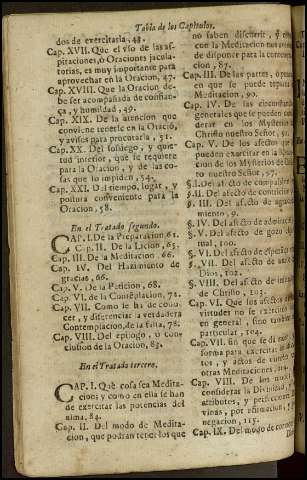 Tabla de los Capitulos.
dos de exercitarla, 43.
Cap. XVII. Que el vso de las as-
piraciones, ò Oraciones jacula-
torias, es muy importante para
aprovechar en la Oracion, 47.
Cap. XVIII. Que la Oracion de-
be ser acompañada de confian-
ça, y humildad, 49.
Cap. XIX. De la atencion que
conviene tenerse en la Oració,
y avisos para procurarla, 51.
Cap. XX. Del sosiego, y quie-
tud interior, que se requiere
para la Oracion, y de las co-
sas que lo impidē, 54.
Cap. XXI. Del tiempo, lugar, y
postura conveniente para la
Oracion, 58.
En el Tratado segundo.
CAP. I. De la Preparacion, 61.
Cap. II. De la Licion, 65.
Cap. III. De la Meditacion. 66.
Cap. IV. Del Hazimiento de
gracias, 66.
Cap. V. De la Peticion, 68.
Cap. VI. De la Contēplacion, 72.
Cap. VII. Como se ha de cono-
cer, y diferenciar la verdadera
Contemplacion, de la falsa, 78.
Cap. VIII. Del epilogo, ò con-
clusion de la Oracion, 83.
En el Tratado tercero.
CAP. I. Què cosa sea Medita-
cion; y como en ella se han
de exercitar las potencias del
alma, 84.
Cap. II. Del modo de Medita-
cion, que podran tener los que
no saben discurrir, y
con la Meditacion
de disponer para la
cion, 87.
Cap. III. De las partes, ò
en que se puede repartir
Meditacion, 90.
Cap. IV. De las circunstancias
generales que se pueden
derar en los Mysterios
Christo nuestro Señor, 91.
Cap. V. De los afectos que
pueden exercitar en la
cion de los Mysterios de
to nuestro Señor, 95.
§. I. Del afecto de compassion,
§. II. Del afecto de contricion,
§. III. Del afecto de
miento, 9.
§. IV. Del afecto de admiracion,
§. V. Del afecto de gozo
mal, 100.
§. VI. Del afecto de esperança,
§. VII. Del afecto de amor
Dios, 102.
§. VIII. Del afecto de
de Christo, 103.
Cap. VI. Que los afectos
virtudes no se exerciten
en general, sino tambien
particular, 104.
Cap. VII. En que se dà
forma para exercitar
tos, y actos de virtudes
otras Meditaciones, 114.
Cap. VIII. De los modos
considerar la Divinidad,
atributos, y perfecciones
vinas, por afirmacion,
negacion, 115.
Cap. IX. Del modo de conocer